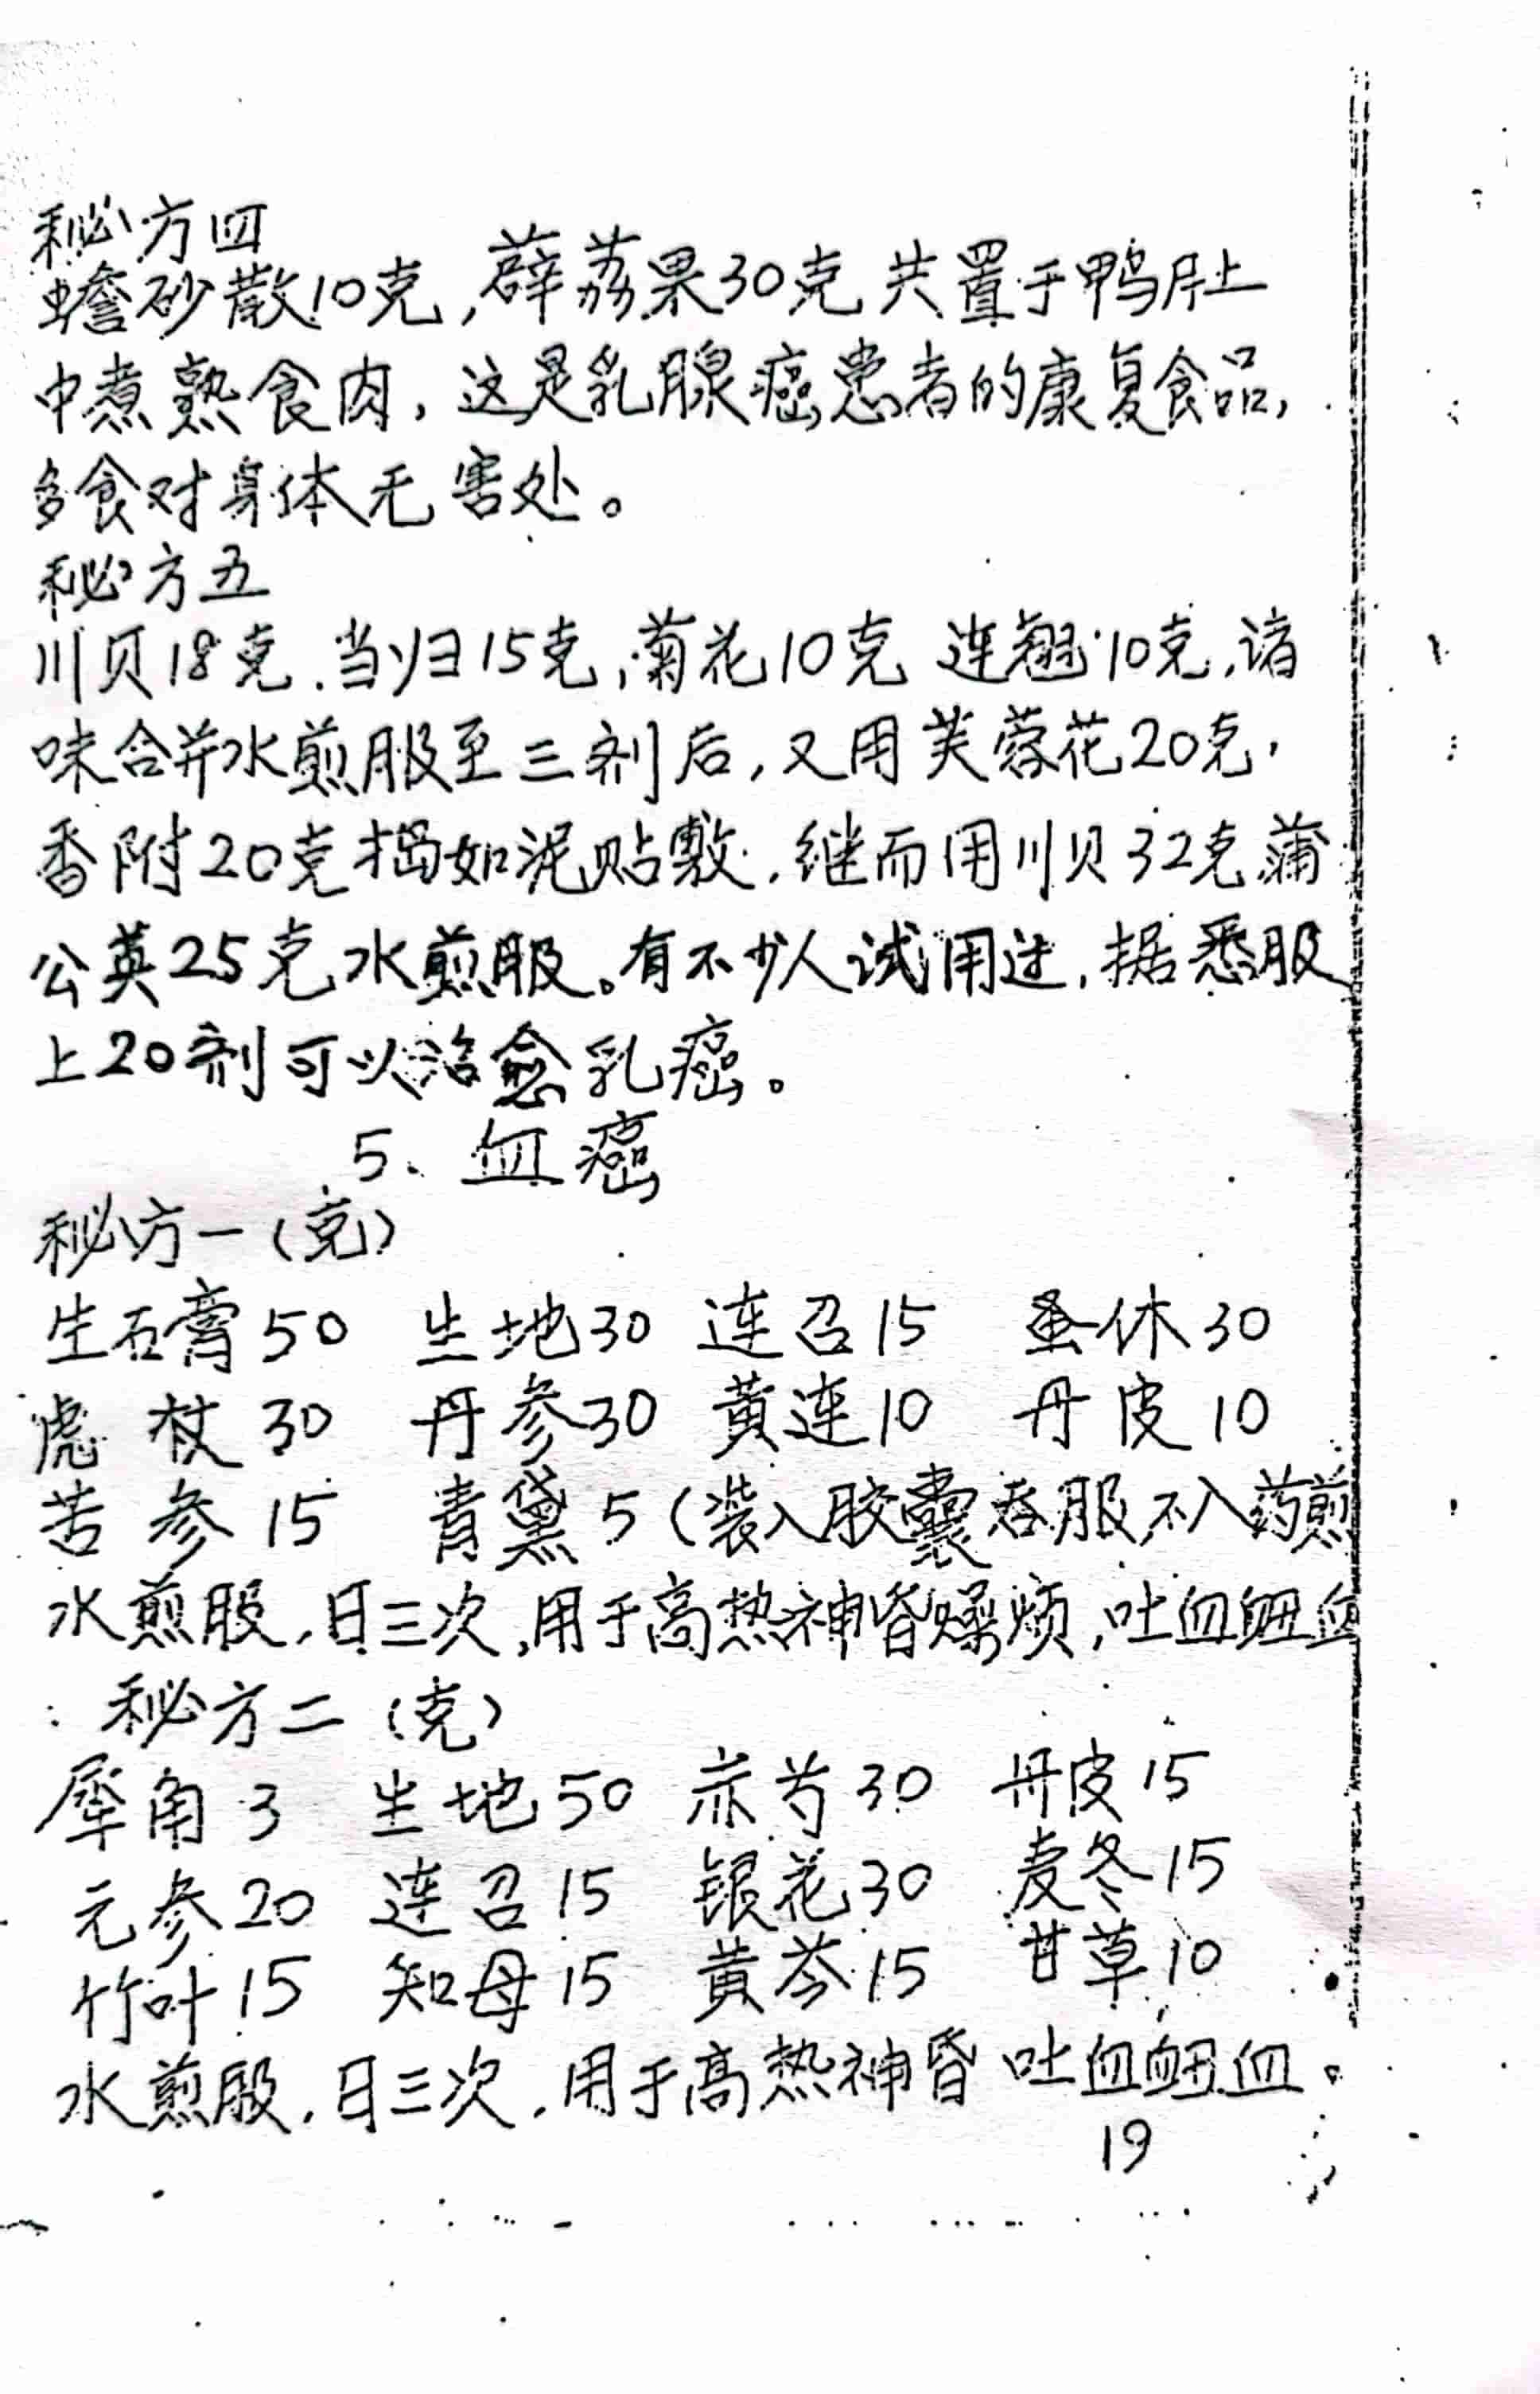 秘方四
蟾砂散10克,薜荔果30克共置于鸭肚
中煮熟食肉,这是乳腺癌患者的康复食品,
多食对身体无害处。
秘方五
川贝18克.当归15克,菊花10克 连翘10克,诸
味合并水煎服至三剂后,又用芙蓉花20克,
香附20克捣如泥贴敷.继而用川贝32克蒲
公英25克水煎服。有不少人试用过,据悉服
上20剂可以治愈乳癌。
5、血癌
秘方一(克)
生石膏50 生地30 连召15 蚤休30
虎杖30 丹参30 黄连10 丹皮10
苦参15 青黛5(装入胶囊吞服不入药煎
水煎服.日三次,用于高热神昏燥烦,吐血衄血
秘方二(克)
犀角3 生地50 赤芍30 丹皮15
元参20 连召15 银花30 麦冬15
竹叶15 知母15 黄芩15 甘草10
水煎服.日三次.用于高热神昏吐血衄血。
19